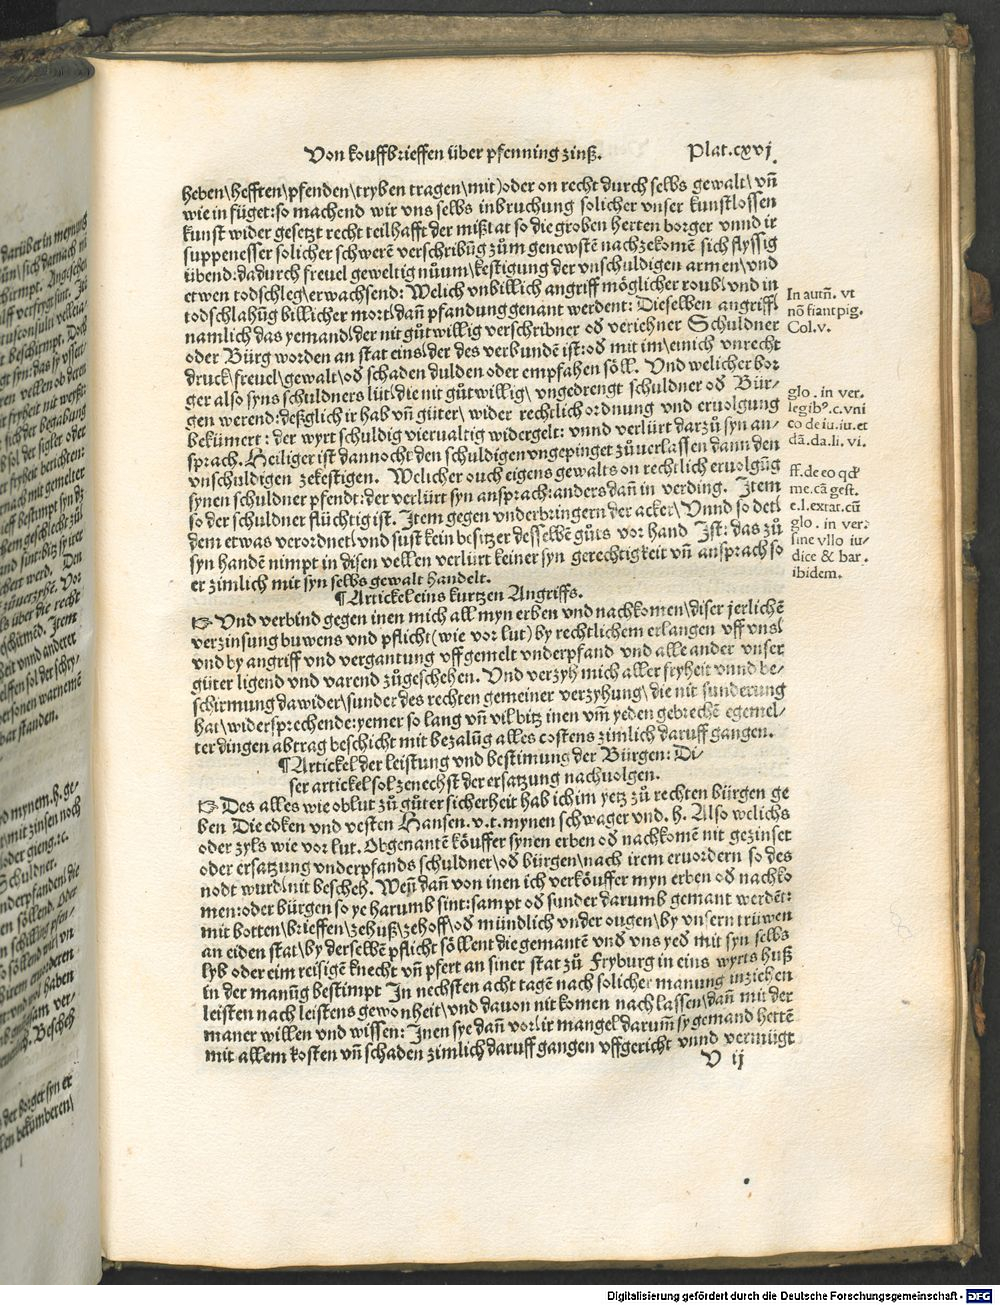 Von kouffbrieffen über pfenning zinß. Plat.cxvj.
heben/hefften/pfenden/tryben tragen/mit)oder on recht durch selbs gewalt/vn̄
wie in füget:so machend wir vns selbs inbruchung solicher vnser kunstlossen
kunst wider gesetzt recht teilhafft der mißtat so die groben herten borger vnnd ir
suppenesser solicher schwerē verschribūg zům genewstē nachzekomē sich flyssig
übend:dadurch freuel geweltig nůum/kestigung der vnschuldigen armen/vnd
etwen todschleg/erwachsend: Welich vnbillich angriff möglicher roub/vnd in
todschlahūg billicher mort/dan̄ pfandung genant werdent: Dieselben angriff/
namlich das yemand/der nit gůtwillig verschribner od̄ verichner Schuldner
oder Bürg worden an stat eins/der des verbunden ist:od̄ mit im/einich vnrecht
druck/freuel/gewalt/od̄ schaden dulden oder empfahen söll. Vnd welicher bor
ger also syns schuldners lüt/die nit gůtwillig/ vngedrengt schuldner od̄ Bür-
gen werend:deßglich ir hab vn̄ güter/ wider rechtlich ordnung vnd eruolgung
bekümert: der wyrt schuldig vierualtig widergelt: vnnd verlürt darzů syn an-
sprach. Heiliger ist dannocht den schuldigen vngepinget zůuerlassen dann den
vnschuldigen zekestigen. Welicher ouch eigens gewalts on rechtlich eruolgūg
synen schuldner pfendt:der verlürt syn ansprach:anders dan̄ in verding. Item
so der schuldner flüchtig ist. Item gegen vnderbringern der acker/Vnnd so detl
dem etwas verordnet/vnd sust kein besitzer desselbē gůts vor hand Ist: das zů
syn handen nimpt in disen vellen verlürt keiner syn gerechtigkeit vn̄ ansprach so
er zimlich mit syn selbs gewalt handelt.
¶Artickel eins kurtzen Angriffs.
☞ Vnd verbind gegen inen mich all myn erben vnd nachkomen/diser jerlichē
verzinsung buwens vnd pflicht(wie vor lut) by rechtlichem erlangen vff vns/
vnd by angriff vnd vergantung vffgemelt vnderpfand vnd alle ander vnser
güter ligend vnd varend zůgeschehen. Vnd verzyh mich aller fryheit vnnd be-
schirmung dawider/sunder des rechten gemeiner verzyhung/die nit sunderung
hat/widersprechende:yemer so lang vn̄ vil bitz inen vm̄ yeden gebrechē egemel-
ter dingen abtrag beschicht mit bezalūg alles costens zimlich daruff gangen.
¶Artickel der leistung vnd bestimung der Bürgen: Di-
ser artickel sol zenechst der ersatzung nachuolgen.
☞ Des alles wie oblut zů gůter sicherheit hab ich im yetz zů rechten bürgen ge
ben Die edken vnd vesten Hansen.v.t.mynen schwager vnd.h. Also welichs
oder zyls wie vor lut. Obgenantē köuffer synen erben od̄ nachkomē nit gezinset
oder ersatzung vnderpfands schuldner/od̄ bürgen/nach irem eruordern so des
nodt wurd/nit bescheh. Wen̄ dan̄ von inen ich verköuffer myn erben od̄ nachko
men:oder bürgen so ye harumb sint:sampt od̄ sunder darumb gemant werdēt:
mit botten/brieffen/zehuß/zehoff/od̄ mündlich vnder ougen/by vnsern trüwen
an eiden stat/by derselbē pflicht söllent die gemantē vnd vns yed̄ mit syn selbs
lyb oder eim reisigē knecht vn̄ pfert an siner stat zů Fryburg in eins wyrts huß
in der manūg bestimpt In nechsten acht tagē nach solicher manung inziehen
leisten nach leistens gewonheit/vnd dauon nit komen nach lassen/dan̄ mit der
maner willen vnd wissen: Inen sye dan̄ vor/ir mangel darum̄ sy gemand hettē
mit allem kosten vn̄ schaden zimlich daruff gangen vffgericht vnnd vernügt
V ij
In autn̄. vt
nō fiant pig.
Col.v.
glo. in ver.
legibꝰ.c.vni
co de iu.iu.et
dā.da.li. vi.
ff.de eo qd̄
me.cā gest.
e.l.extat.cū
glo. in ver.
sine vllo iu-
dice & bar.
ibidem.
Digitalisierung gefördert durch die Deutsche Forschungsgemeinschaft - DFG